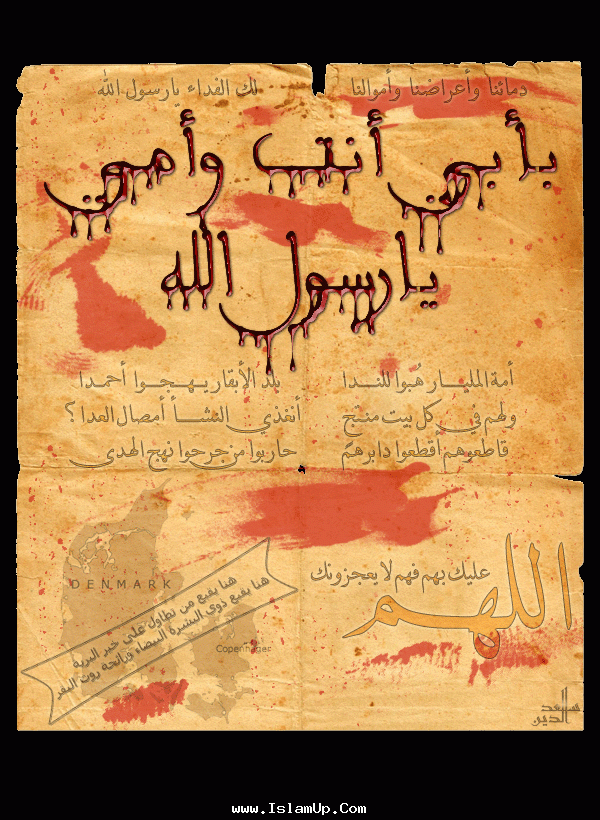 دمائنا وأعراضنا وأموالنا لك الفداء يارسول الله
بأبي أنت وأمي
يارسول الله
أمة المليار هُبوا للندا بلد الأبقار يهجوا أحمدا
ولهم في كل بيت منتج أنغذي النشأ أمصال العدا ؟
قاطعوهم أقطعوا دابرهم حاربوا من جرحوا نهج الهدى
DENMARK
هنا يقبع من تطاول على خير البرية
هنا يقبع ذوي البشرة البيضاء ورائحة روث البقر
Copenhagen
اللهم
عليك بهم فهم لا يعجزونك
سعد الدين
www.IslamUp.Com